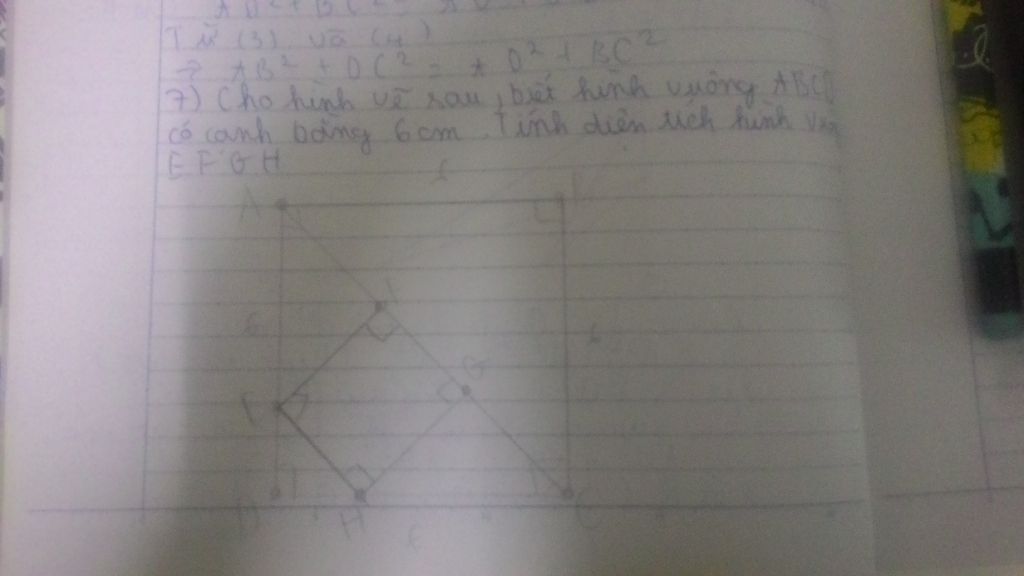 Từ (3) và (4)
=> AB² + DC² = AD² + BC²
7) Cho hình vẽ sau, biết hình vuông ABCD
có cạnh bằng 6cm. Tính diện tích hình
EFGH
6
A
6
6
G
D
H
C
6